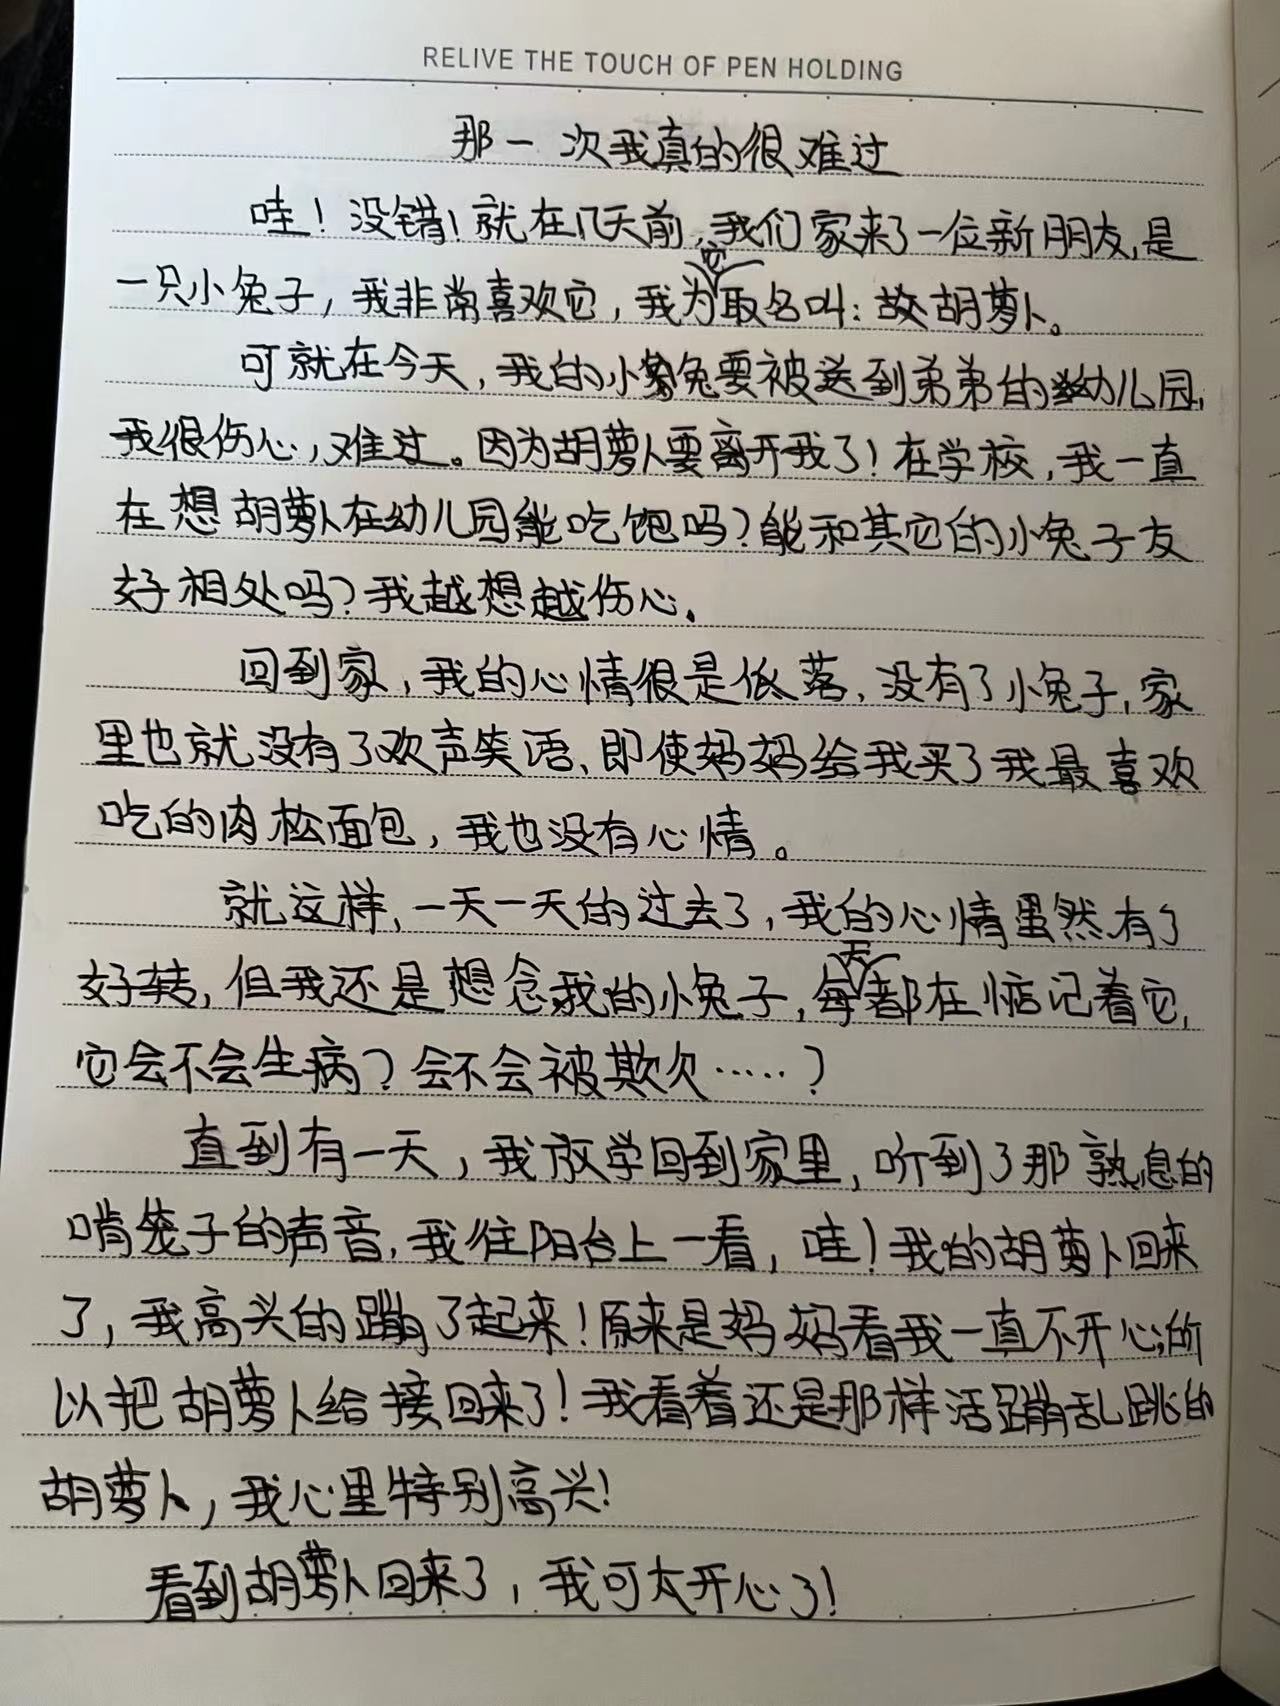 RELIVE THE TOUCH OF PEN HOLDING
那一次我真的很难过
哇！没错！就在几天前，我们家来了一位新朋友,是
一只小兔子，我非常喜欢它，我为它取名叫：故胡萝卜。
可就在今天，我的小兔要被送到弟弟的幼儿园,
我很伤心,难过。因为胡萝卜要离开我了！在学校,我一直
在想胡萝卜在幼儿园能吃饱吗？能和其它的小兔子友
好相处吗？我越想越伤心。
回到家，我的心情很是低落，没有了小兔子,家
里也就没有了欢声笑语、即使妈妈给我买了我最喜欢
吃的肉松面包，我也没有心情。
就这样,一天一天的过去了，我的心情虽然有了
好转,但我还是想念我的小兔子,每天都在惦记着它,
它会不会生病？会不会被欺欠……？
直到有一天，我放学回到家里，听到了那熟息的
啃笼子的声音,我往阳台上一看，哇！我的胡萝卜回来
了，我高兴的蹦了起来！原来是妈妈看我一直不开心,所
以把胡萝卜给接回来了！我看着还是那样活蹦乱跳的
胡萝卜，我心里特别高兴！
看到胡萝卜回来了，我可太开心了！